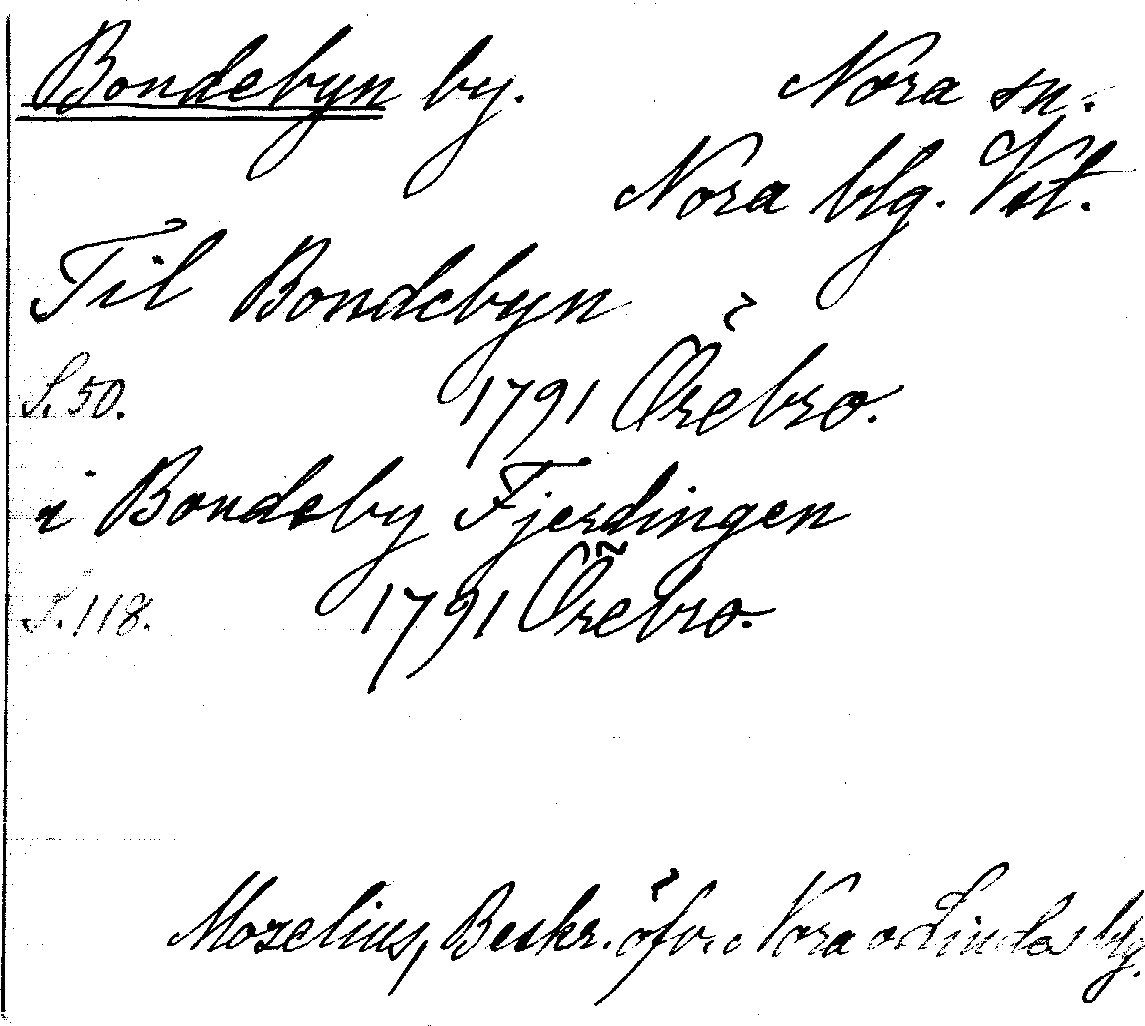 Bondebyn by. Nora sn.
Nora blg. Vst.
Til Bondebyn
S. 50. 1791 Örebro.
i Bondeby Fjerdingen
S. 118. 1791 Örebro.
Mozelius, Beskr. öfv. Nora o Lindes blg.